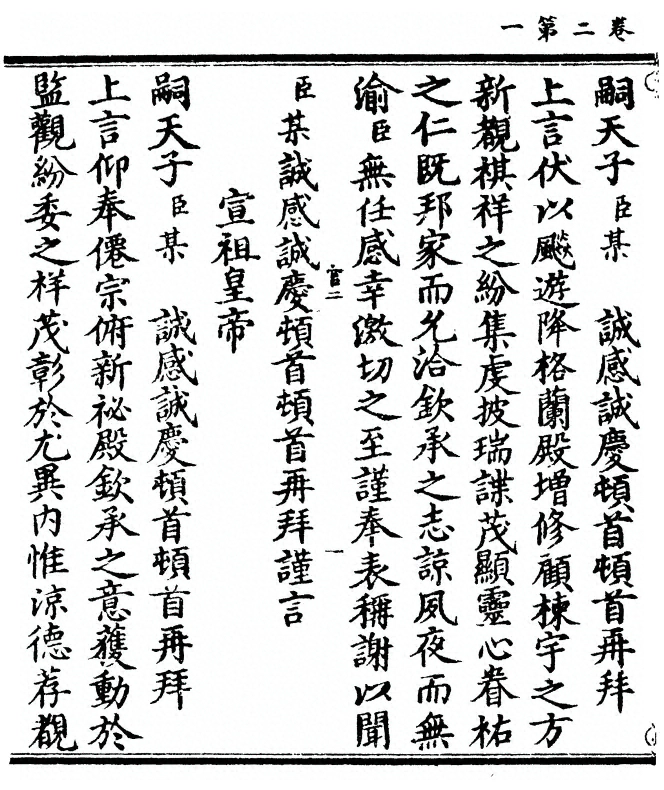 卷二第一
嗣天子臣某 誠感誠慶頓首頓首再拜
上言伏以飈遊降格蘭殿增修顧棟宇之方
新覩祺祥之紛集虔披瑞諜茂顯靈心眷祐
之仁既邦家而允洽欽承之志諒夙夜而無
渝臣無任感幸激切之至謹奉表稱謝以聞
臣某誠感誠慶頓首頓首再拜謹言
宣祖皇帝
嗣天子臣某 誠感誠慶頓首頓首再拜
上言仰奉僊宗俯新祕殿欽承之意蔆動於
監觀紛委之祥茂彰於尤異內惟涼德荐覩